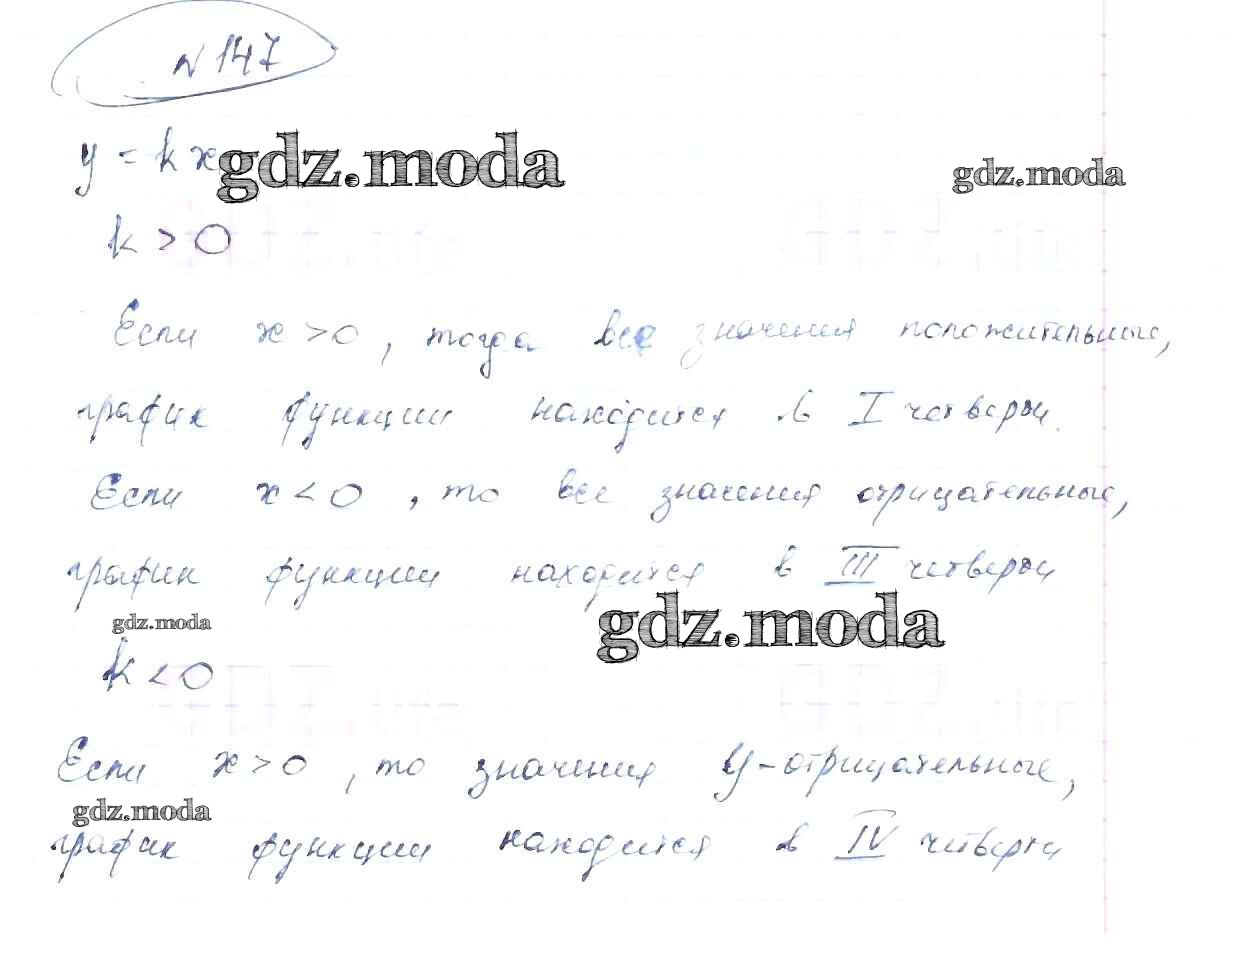 № 147
y = kx
gdz.moda
gdz.moda
k > 0
Если x > 0, тогда все значения положительные,
график функции находится в I четверти.
Если x < 0, то все значения отрицательные,
график функции находится в III четверти
gdz.moda
gdz.moda
k < 0
Если x > 0, то значения y - отрицательные,
gdz.moda
график функции находится в IV четверти